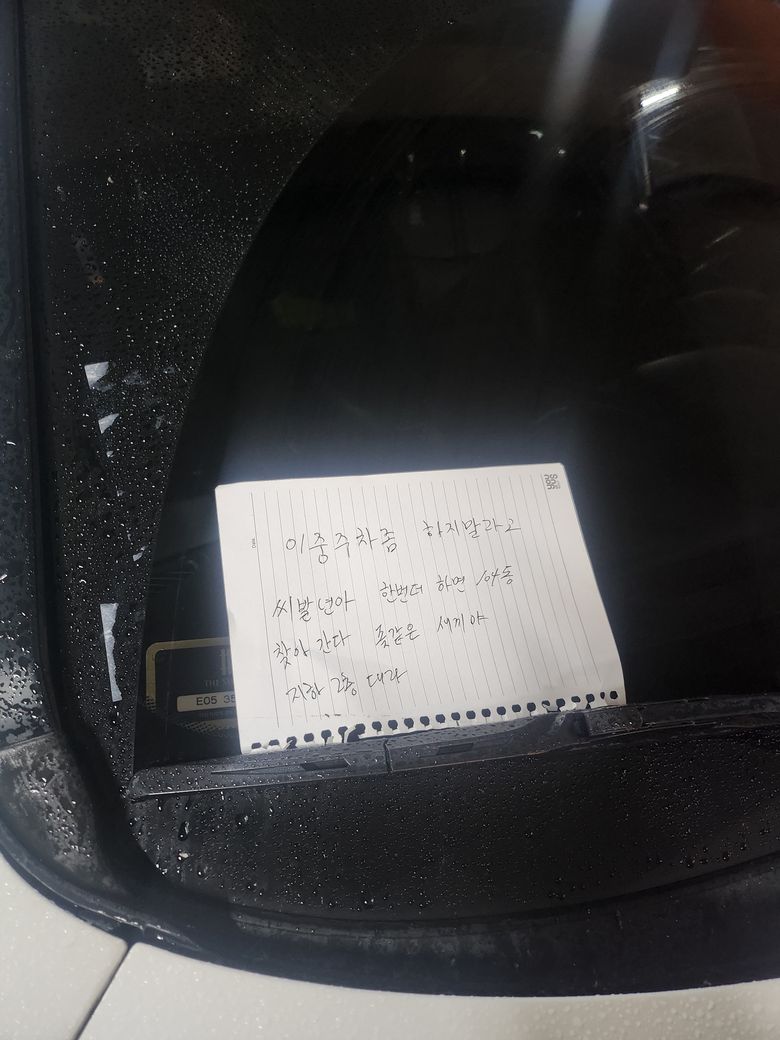 이중주차좀 하지말라고
씨발년아 한번더 하면 104동
찾아간다 좆같은 새끼야
지하 2층 대라
E05 35